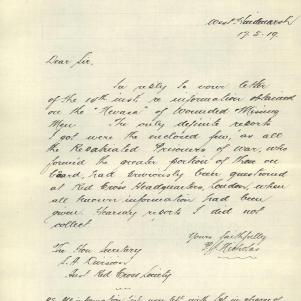 West Hindmarsh
17.5.19.
Dear Sir,
In reply to your letter
of the 10th inst. re information obtained
on the "Nevasa" of Wounded & Missing
Men. The only definite reports
I got were the enclosed few, as all
the Repatriated Prisoners of War, who
formed the greater portion of those on
board, had previously been questioned
at Red Cross Headquarters, London, when
all known information had been
given. Hearsay reports I did not
collect.
Yours faithfully
The Hon Secretary
S.A. Division
Aust. Red Cross Society